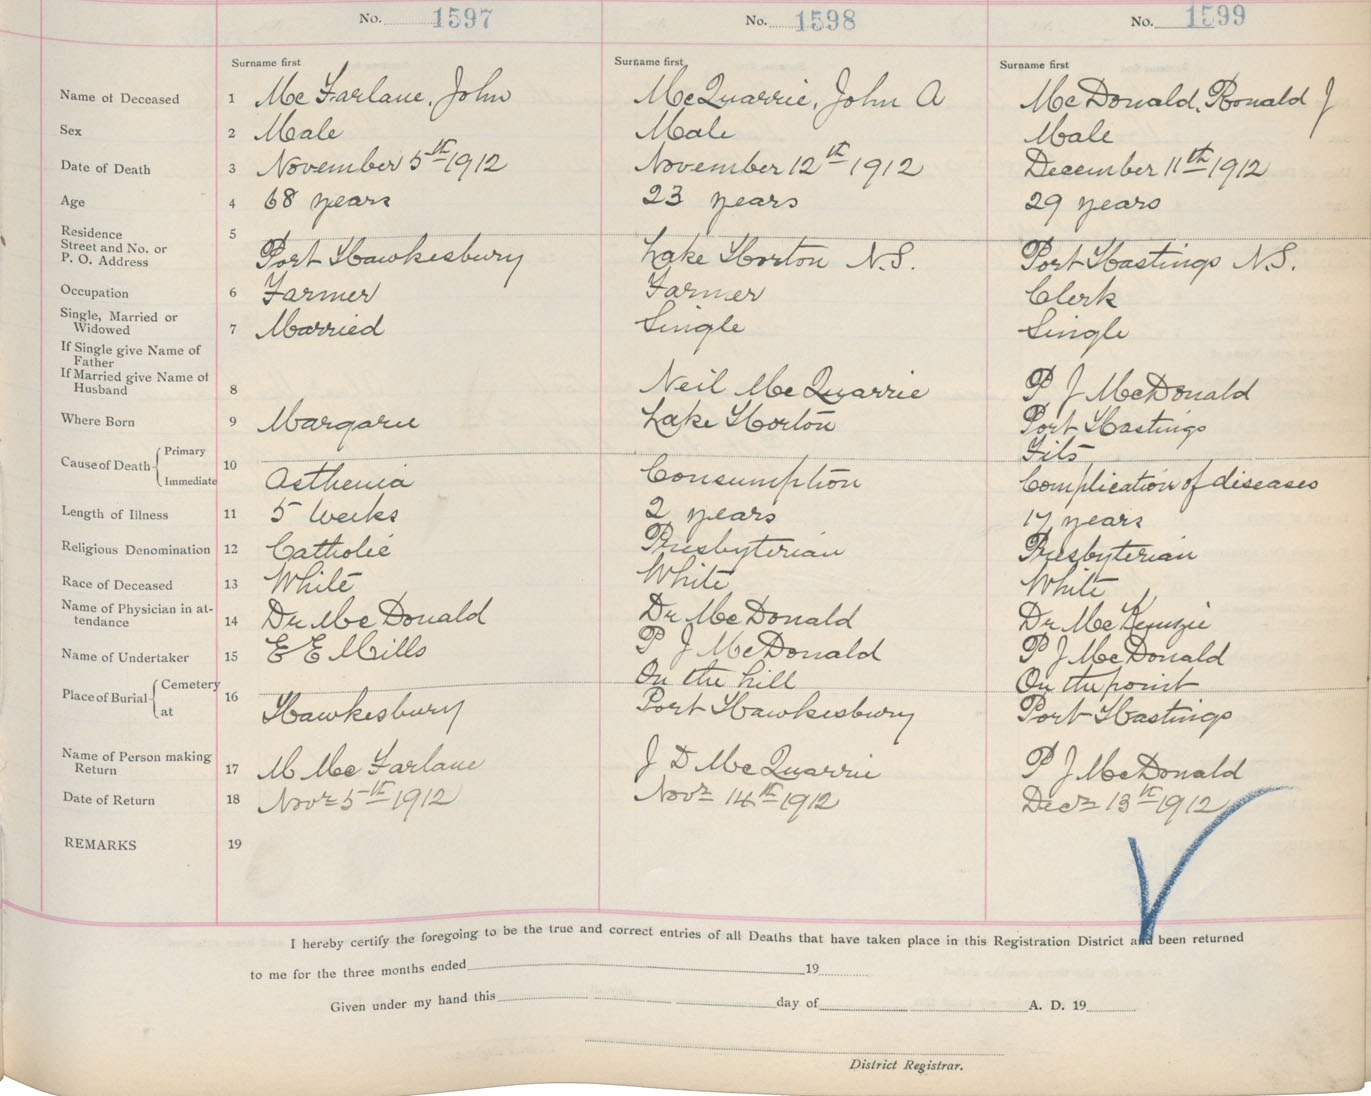 No. 1597 No. 1598 No. 1599
Surname first Surname first Surname first
Name of Deceased 1 McFarlane, John McQuarrie, John A McDonald, Ronald J
Sex 2 Male Male Male
Date of Death 3 November 5th 1912 November 12th 1912 December 11th 1912
Age 4 68 years 23 years 29 years
Residence 5
Street and No. or
P. O. Address Port Hawkesbury Lake Horton N.S. Port Hastings N.S.
Occupation 6 Farmer Farmer Clerk
Single, Married or
Widowed 7 Married Single Single
If Single give Name of
Father
If Married give Name of
Husband 8 Neil McQuarrie P J McDonald
Where Born 9 Margaree Lake Horton Port Hastings
Cause of Death Primary 10 Fits
Immediate Asthenia Consumption Complication of diseases
Length of Illness 11 5 Weeks 2 years 17 years
Religious Denomination 12 Catholic Presbyterian Presbyterian
Race of Deceased 13 White White White
Name of Physician in at-
tendance 14 Dr McDonald Dr McDonald Dr McKenzie
Name of Undertaker 15 E E Mills P J McDonald P J McDonald
Place of Burial Cemetery 16 On the hill On the point
at Hawkesbury Port Hawkesbury Port Hastings
Name of Person making
Return 17 M McFarlane J D McQuarrie P J McDonald
Date of Return 18 Novr 5th 1912 Novr 14th 1912 Decr 13th 1912
REMARKS 19
I hereby certify the foregoing to be the true and correct entries of all Deaths that have taken place in this Registration District and been returned
to me for the three months ended 19
Given under my hand this day of A. D. 19
District Registrar.